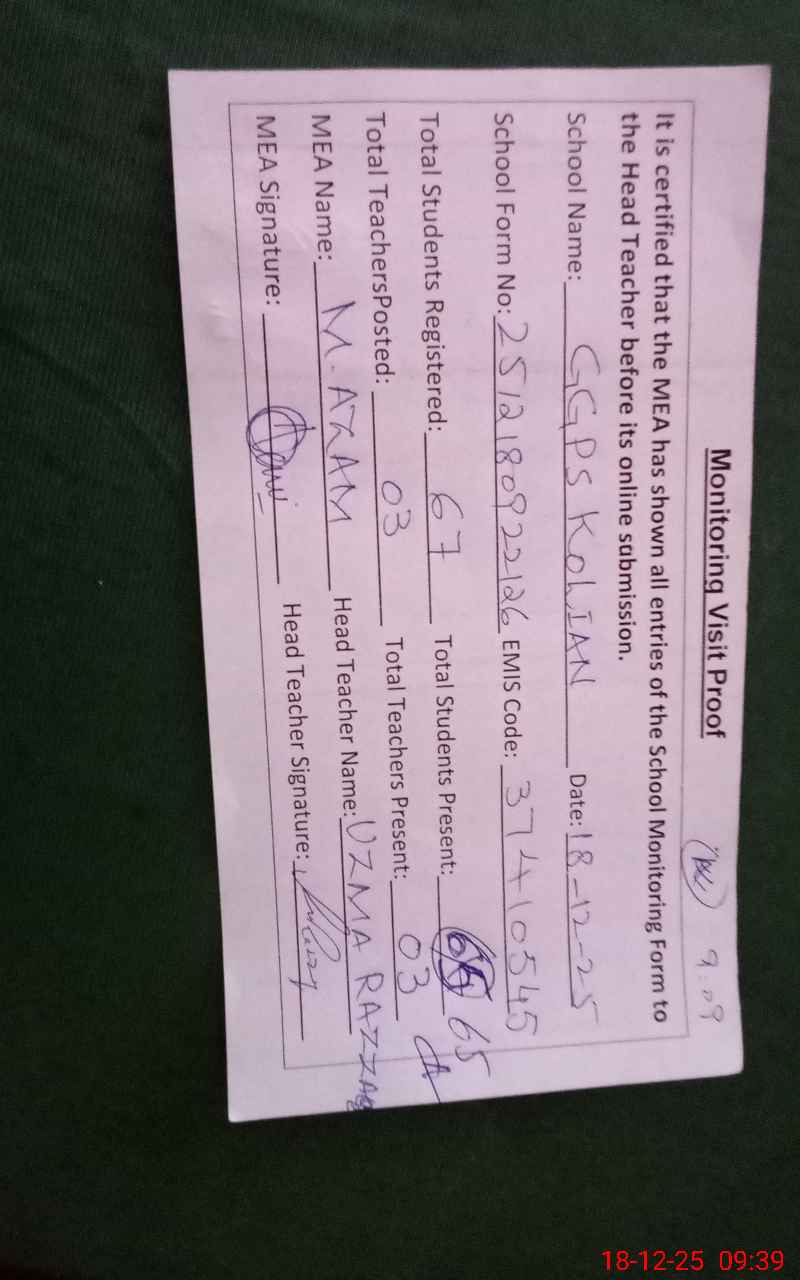 Monitoring Visit Proof
9:09
It is certified that the MEA has shown all entries of the School Monitoring Form to
the Head Teacher before its online submission.
School Name: GGPS KOLIAN Date: 18-12-25
School Form No: 2512180922126 EMIS Code: 37410545
Total Students Registered: 67 Total Students Present: 65
Total TeachersPosted: 03 Total Teachers Present: 03
MEA Name: M. AZAM Head Teacher Name: UZMA RAZZAQ
MEA Signature: Head Teacher Signature:
18-12-25 09:39